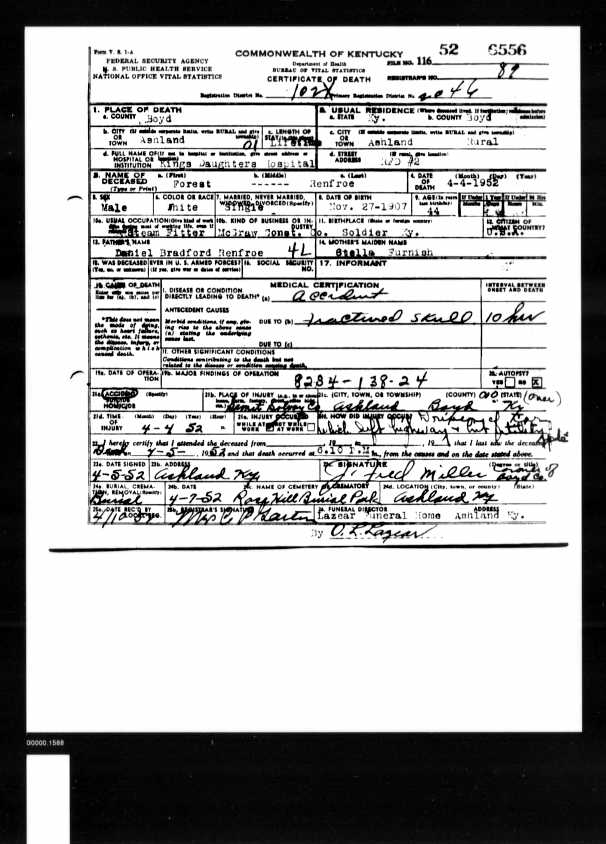 Form V. S. 1-A
FEDERAL SECURITY AGENCY
U. S. PUBLIC HEALTH SERVICE
NATIONAL OFFICE VITAL STATISTICS
COMMONWEALTH OF KENTUCKY
Department of Health
BUREAU OF VITAL STATISTICS
CERTIFICATE OF DEATH
52 6556
FILE NO. 116
REGISTRAR'S NO. 89
Registration District No. Primary Registration District No.
1. PLACE OF DEATH
a. COUNTY Boyd
2. USUAL RESIDENCE (Where deceased lived. If institution; residence before admission)
a. STATE Ky. b. COUNTY Boyd
b. CITY (If outside corporate limits, write RURAL and give township)
OR TOWN Ashland
c. LENGTH OF STAY
c. CITY (If outside corporate limits, write RURAL and give township)
OR TOWN Ashland Rural
d. FULL NAME OF (If not in hospital or institution, give street address or location)
HOSPITAL OR INSTITUTION Kings Daughters Hospital
d. STREET ADDRESS (If rural, give location)
RFD #2
3. NAME OF DECEASED (Type or Print)
a. (First) Forest
b. (Middle) ------
c. (Last) Renfroe
4. DATE OF DEATH (Month) (Day) (Year)
4-4-1952
5. SEX Male
6. COLOR OR RACE White
7. MARRIED, NEVER MARRIED, WIDOWED, DIVORCED (Specify) Single
8. DATE OF BIRTH Nov. 27-1907
9. AGE (In years last birthday) 44
If Under 1 Year
Months
If Under 24 Hrs
10a. USUAL OCCUPATION (Give kind of work done during most of working life, even if retired) Steam Fitter
10b. KIND OF BUSINESS OR INDUSTRY McGray Const. Co.
11. BIRTHPLACE (State or foreign country) Soldier Ky.
12. CITIZEN OF WHAT COUNTRY? U.S.A.
13. FATHER'S NAME Daniel Bradford Renfroe
4L
14. MOTHER'S MAIDEN NAME Stella Furnish
15. WAS DECEASED EVER IN U. S. ARMED FORCES? (Yes, no, or unknown) (If yes, give war or dates of service)
16. SOCIAL SECURITY NO.
17. INFORMANT
18. CAUSE OF DEATH
Enter only one cause per line for (a), (b), and (c)
MEDICAL CERTIFICATION
INTERVAL BETWEEN ONSET AND DEATH
I. DISEASE OR CONDITION DIRECTLY LEADING TO DEATH* (a) accident
*This does not mean the mode of dying, such as heart failure, asthenia, etc. It means the disease, injury, or complication which caused death.
ANTECEDENT CAUSES
Morbid conditions, if any, giving rise to the above cause (a) stating the underlying cause last.
DUE TO (b) fractured skull 10 hr
DUE TO (c)
II. OTHER SIGNIFICANT CONDITIONS
Conditions contributing to the death but not related to the disease or condition causing death.
19a. DATE OF OPERATION
19b. MAJOR FINDINGS OF OPERATION
8234-138-24
20. AUTOPSY?
YES NO X
21a. ACCIDENT (Specify)
HOMICIDE
21b. PLACE OF INJURY
21c. (CITY, TOWN, OR TOWNSHIP) (COUNTY) (STATE)
Ashland Boyd Ky
21d. TIME OF INJURY (Month) (Day) (Year) (Hour)
4-4 52
21e. INJURY OCCURRED
WHILE AT WORK NOT WHILE AT WORK
21f. HOW DID INJURY OCCUR?
which left highway & hit utility pole
22. I hereby certify that I attended the deceased from , 19 , to , 19 , that I last saw the deceased
on 4-5-, 1952 and that death occurred at 8.10 m., from the causes and on the date stated above.
23a. DATE SIGNED 4-5-52
23b. ADDRESS Ashland Ky
23c. SIGNATURE J. Fred Miller (Degree or title) Coroner Boyd Co.
24a. BURIAL, CREMATION, REMOVAL (Specify) Burial
24b. DATE 4-7-52
24c. NAME OF CEMETERY OR CREMATORY Rose Hill Burial Park
24d. LOCATION (City, town, or county) (State) Ashland Ky
25a. DATE REC'D BY LOCAL REG.
25b. REGISTRAR'S SIGNATURE
26. FUNERAL DIRECTOR
Lazear Funeral Home Ashland Ky.
By O. L. Lazear
00000.1588
1